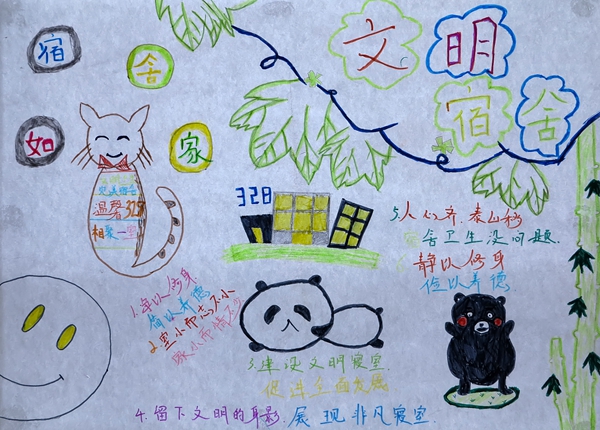 文明
宿舍
宿舍
如家
温馨328
相聚一室
328
1.静以修身
俭以养德
2.室小而志不小
3.建设文明寝室
促进全面发展
4.留下文明的身影.展现非凡寝室
5.人心齐.泰山移
舍卫生没问题.
静以修身
俭以养德.